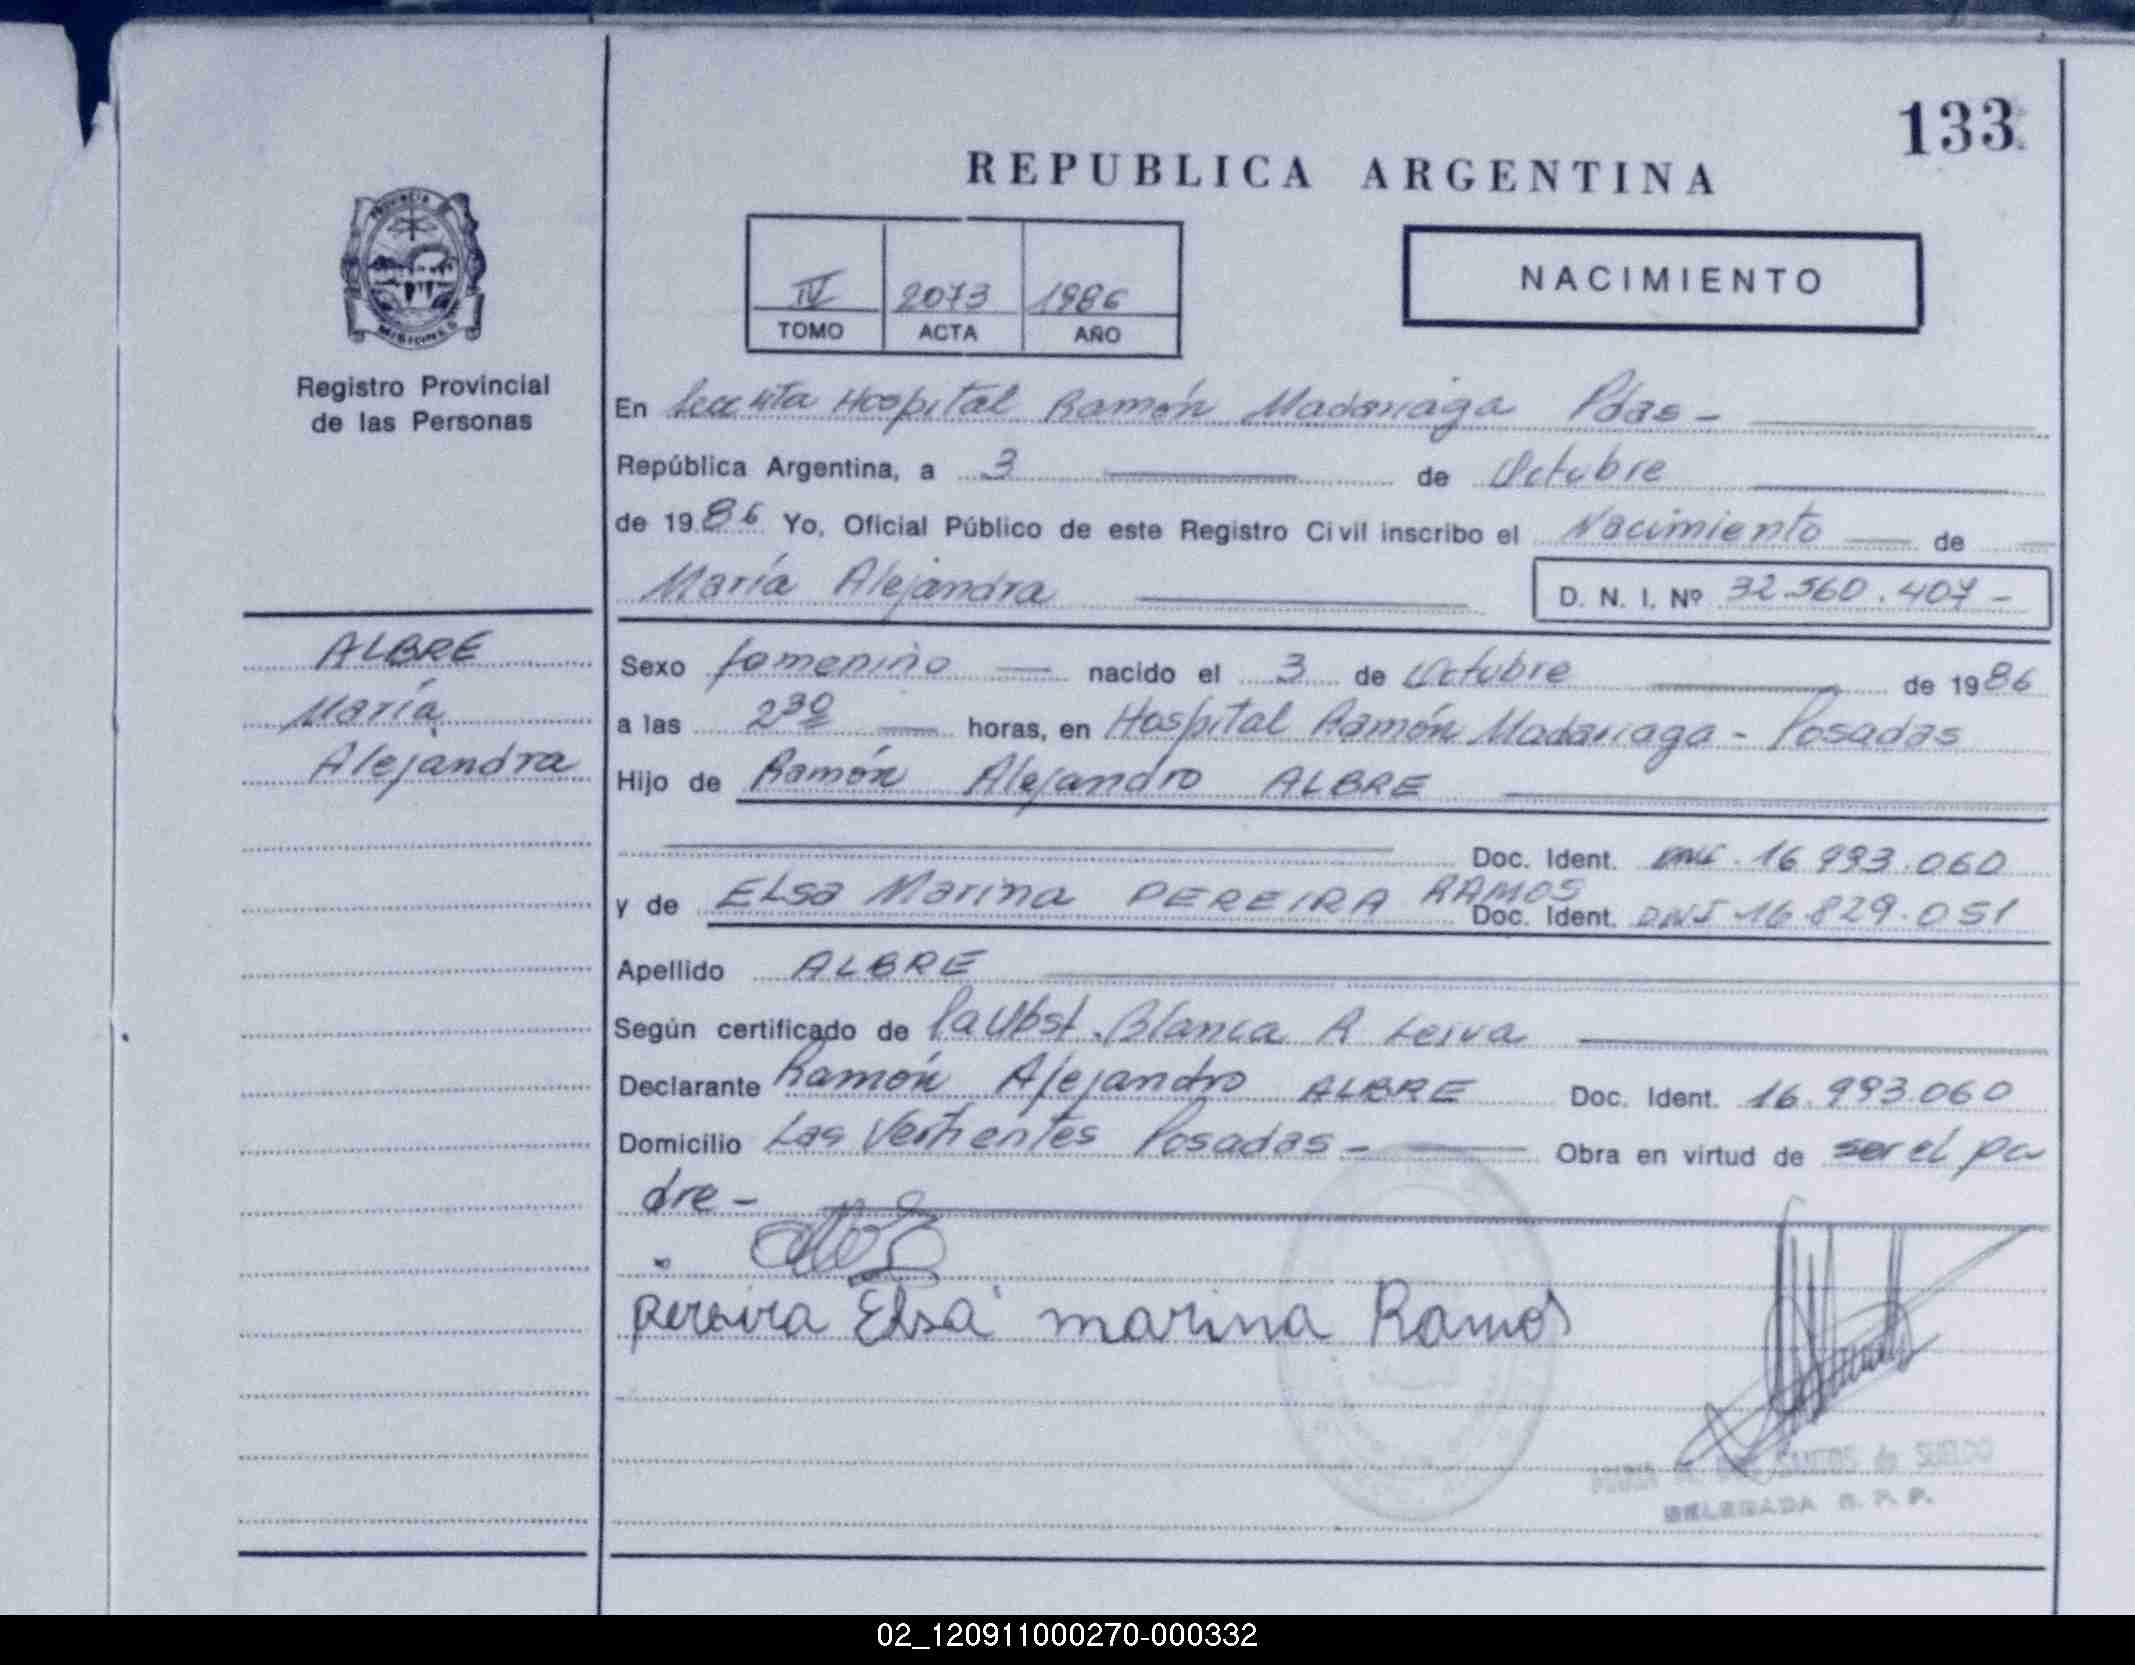 133
REPUBLICA ARGENTINA
PROVINCIA DE
MISIONES
Registro Provincial
de las Personas
IV 2073 1986
TOMO ACTA AÑO
NACIMIENTO
En Hospital Ramón Madariaga Pdas -
República Argentina, a 3 de Octubre
de 1986 Yo, Oficial Público de este Registro Civil inscribo el Nacimiento de
María Alejandra D. N. I. Nº 32.560.407 -
ALBRE
María
Alejandra
Sexo femenino nacido el 3 de Octubre de 1986
a las 2 30 horas, en Hospital Ramón Madariaga - Posadas
Hijo de Ramón Alejandro ALBRE
Doc. Ident. DNI. 16 993.060
y de Elsa Marina PEREIRA RAMOS Doc. Ident. DNI 16.829.051
Apellido ALBRE
Según certificado de Blanca R Leiva
Declarante Ramón Alejandro ALBRE Doc. Ident. 16.993.060
Domicilio Las Vertientes Posadas - Obra en virtud de ser el pa
dre -
Pereira Elsa marina Ramos
SANTOS de SUELDO
DELEGADA R. P. P.
02_120911000270-000332